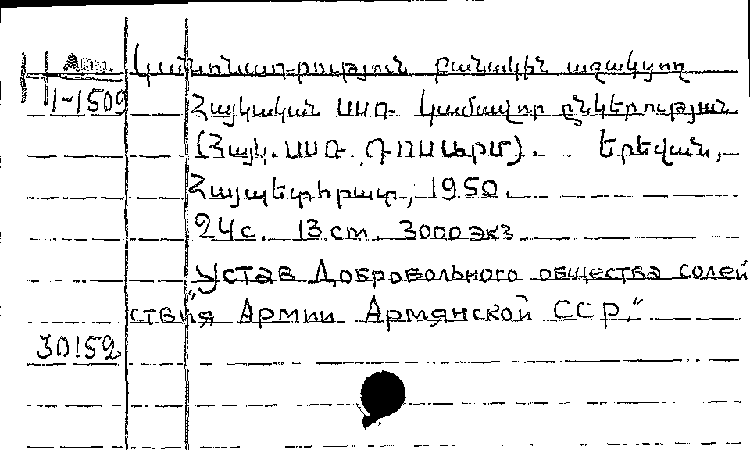 Арм. Կանոնադրություն բանակին աջակցող
1-1509 Հայկական ՍՍՌ կամավոր ընկերության
(Հայկ. ՍՍՌ ԴՈՍԱԲՄ). Երեվան,
Հայպետհրատ, 1950.
24с. 13 cm. 3000 экз
"Устав Добровольного общества содей
ствия Армии Армянской ССР."
30152